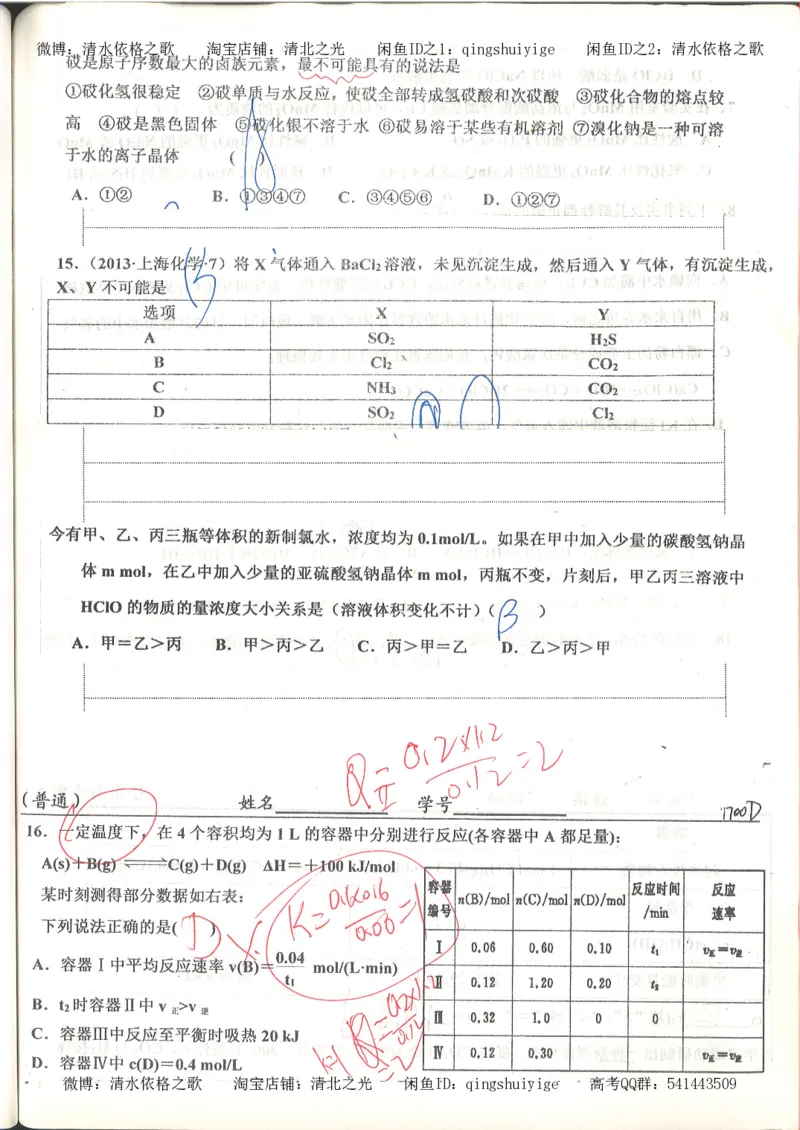 微博：清水依格之歌 淘宝店铺：清北之光 闲鱼ID之1：qingshuiyige 闲鱼ID之2：清水依格之歌
砹是原子序数最大的卤族元素，最不可能具有的说法是
①砹化氢很稳定 ②砹单质与水反应，使砹全部转成氢砹酸和次砹酸 ③砹化合物的熔点较
高 ④砹是黑色固体 ⑤砹化银不溶于水 ⑥砹易溶于某些有机溶剂 ⑦溴化钠是一种可溶
于水的离子晶体 ( )
A．①② B．①③④⑦ C．③④⑤⑥ D．①②⑦
15.（2013·上海化学·7）将 X 气体通入 BaCl₂ 溶液，未见沉淀生成，然后通入 Y 气体，有沉淀生成，
X、Y 不可能是 B
选项 X Y
A SO₂ H₂S
B Cl₂ CO₂
C NH₃ CO₂
D SO₂ Cl₂
今有甲、乙、丙三瓶等体积的新制氯水，浓度均为 0.1mol/L。如果在甲中加入少量的碳酸氢钠晶
体 m mol，在乙中加入少量的亚硫酸氢钠晶体 m mol，丙瓶不变，片刻后，甲乙丙三溶液中
HClO 的物质的量浓度大小关系是（溶液体积变化不计）( B )
A．甲＝乙＞丙 B．甲＞丙＞乙 C．丙＞甲＝乙 D．乙＞丙＞甲
Q_Ⅱ = 0.2×1.2 / 0.12 = 2
(普通) 姓名 学号
1700D
16．一定温度下，在 4 个容积均为 1 L 的容器中分别进行反应(各容器中 A 都足量)：
A(s)＋B(g) ⇌ C(g)＋D(g) ΔH＝＋100 kJ/mol
某时刻测得部分数据如右表：
下列说法正确的是( D )
容器编号 n(B)/mol n(C)/mol n(D)/mol 反应时间/min 反应速率
Ⅰ 0.06 0.60 0.10 t₁ v正＝v逆
Ⅱ 0.12 1.20 0.20 t₂
Ⅲ 0.32 1.0 0 0
Ⅳ 0.12 0.30 v正＝v逆
A．容器Ⅰ中平均反应速率 v(B)＝0.04/t₁ mol/(L·min)
B．t₂时容器Ⅱ中 v正>v逆
C．容器Ⅲ中反应至平衡时吸热 20 kJ
D．容器Ⅳ中 c(D)＝0.4 mol/L
微博：清水依格之歌 淘宝店铺：清北之光 闲鱼ID：qingshuiyige 高考QQ群：541443509